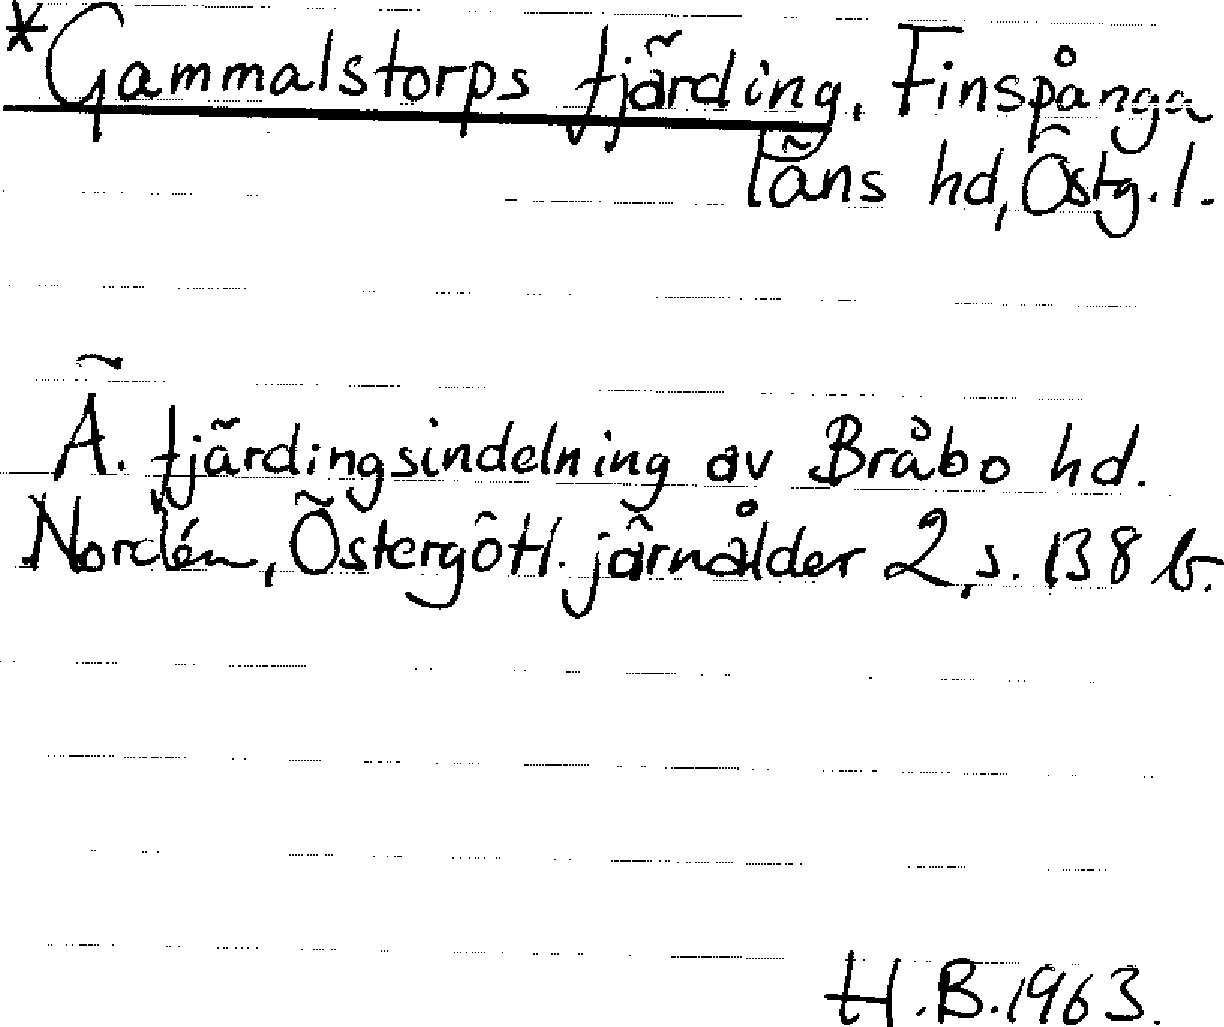 *Gammalstorps fjärding, Finspånga
läns hd, Östg. l.
Ä. fjärdingsindelning av Bråbo hd.
Nordén, Östergötl. järnålder 2, s. 138 b.
H.B. 1963.